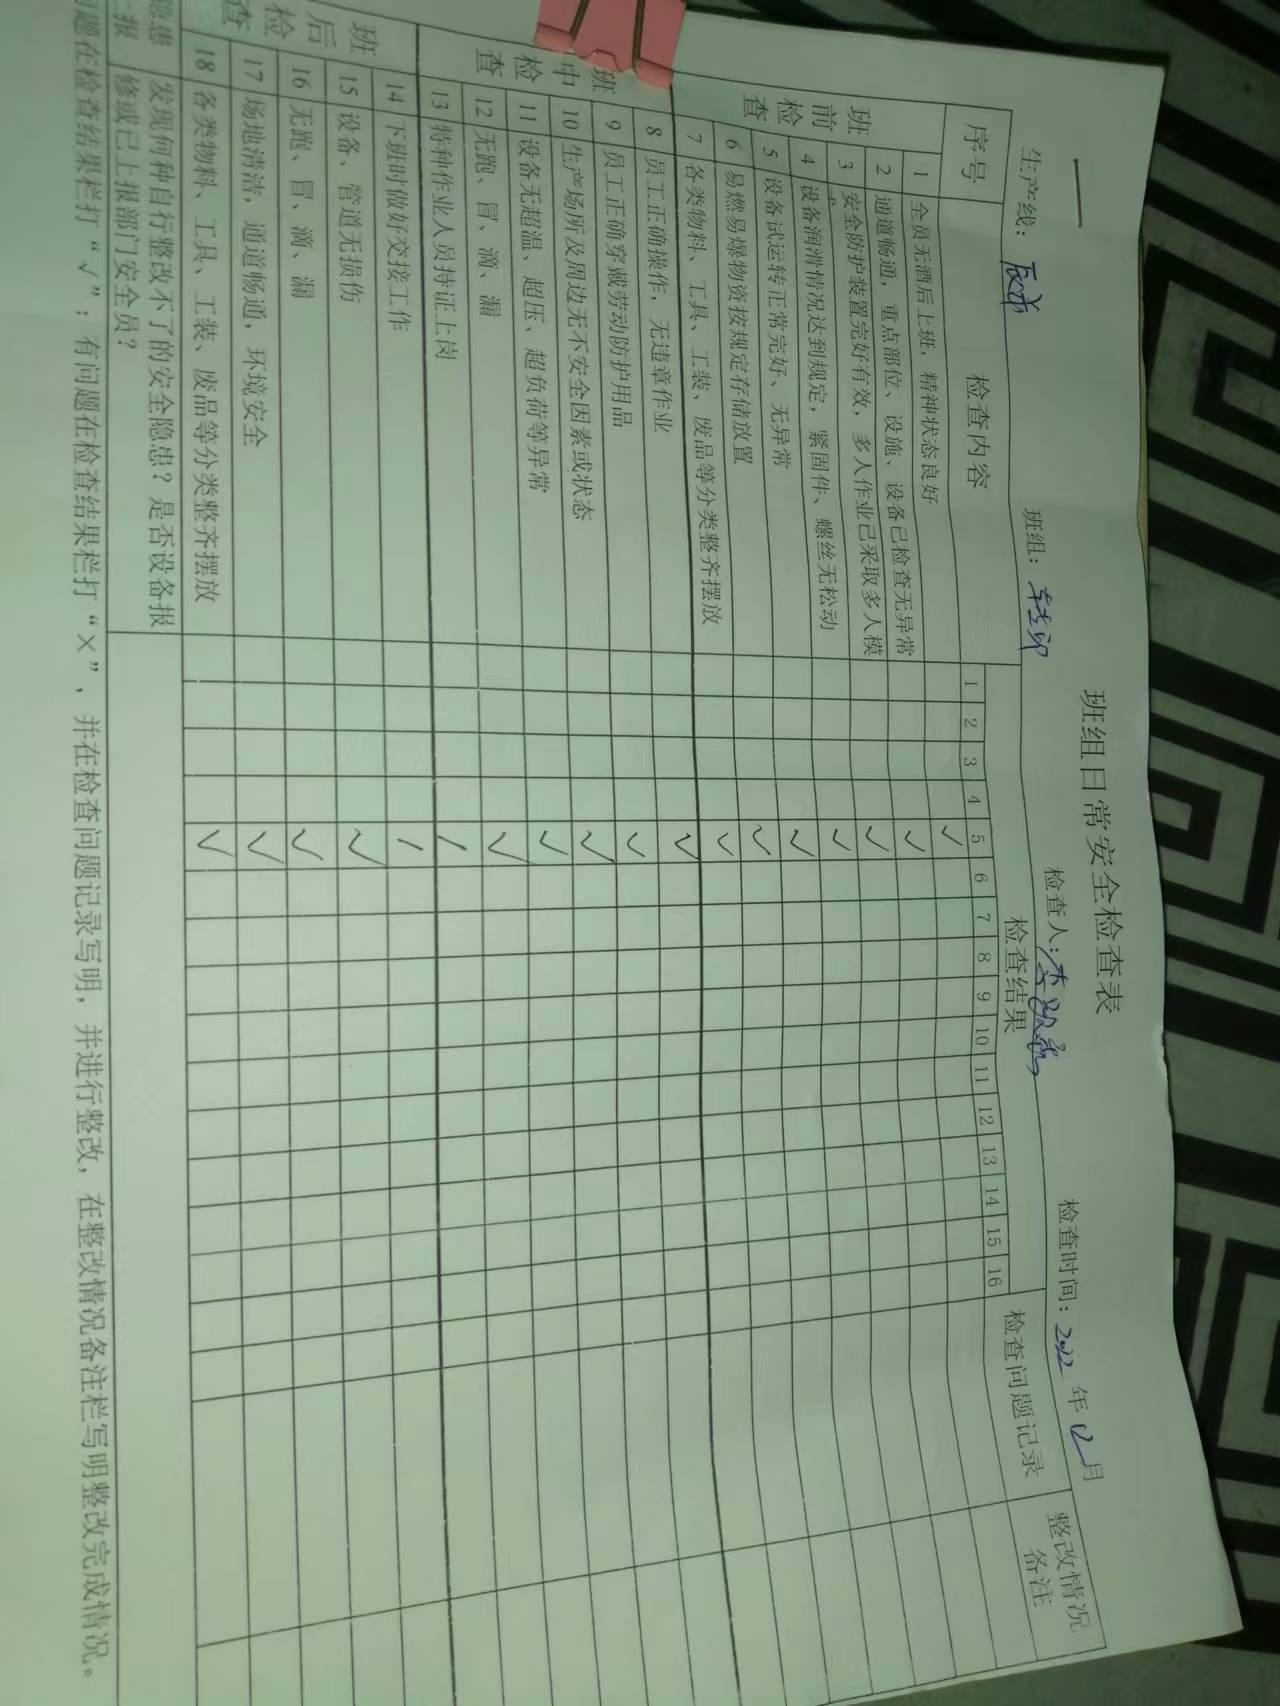 班组日常安全检查表
生产线： 班组：转印 检查人： 检查时间：2022 年 12 月
序号 检查内容 检查结果 检查问题记录 整改情况备注
1 2 3 4 5 6 7 8 9 10 11 12 13 14 15 16
班前检查
1 全员无酒后上班，精神状态良好 ✓
2 通道畅通，重点部位、设施、设备已检查无异常 ✓
3 安全防护装置完好有效，多人作业已采取多人模式 ✓
4 设备润滑情况达到规定，紧固件、螺丝无松动 ✓
5 设备试运转正常完好、无异常 ✓
6 易燃易爆物资按规定存储放置 ✓
7 各类物料、工具、工装、废品等分类整齐摆放 ✓
班中检查
8 员工正确操作，无违章作业 ✓
9 员工正确穿戴劳动防护用品 ✓
10 生产场所及周边无不安全因素或状态 ✓
11 设备无超温、超压、超负荷等异常 ✓
12 无跑、冒、滴、漏 ✓
13 特种作业人员持证上岗 /
班后检查
14 下班时做好交接工作 /
15 设备、管道无损伤 ✓
16 无跑、冒、滴、漏 ✓
17 场地清洁，通道畅通，环境安全 ✓
18 各类物料、工具、工装、废品等分类整齐摆放 ✓
隐患 发现何种自行整改不了的安全隐患？是否设备报
报 修或已上报部门安全员？
问题在检查结果栏打“√”；有问题在检查结果栏打“×”，并在检查问题记录写明，并进行整改，在整改情况备注栏写明整改完成情况。